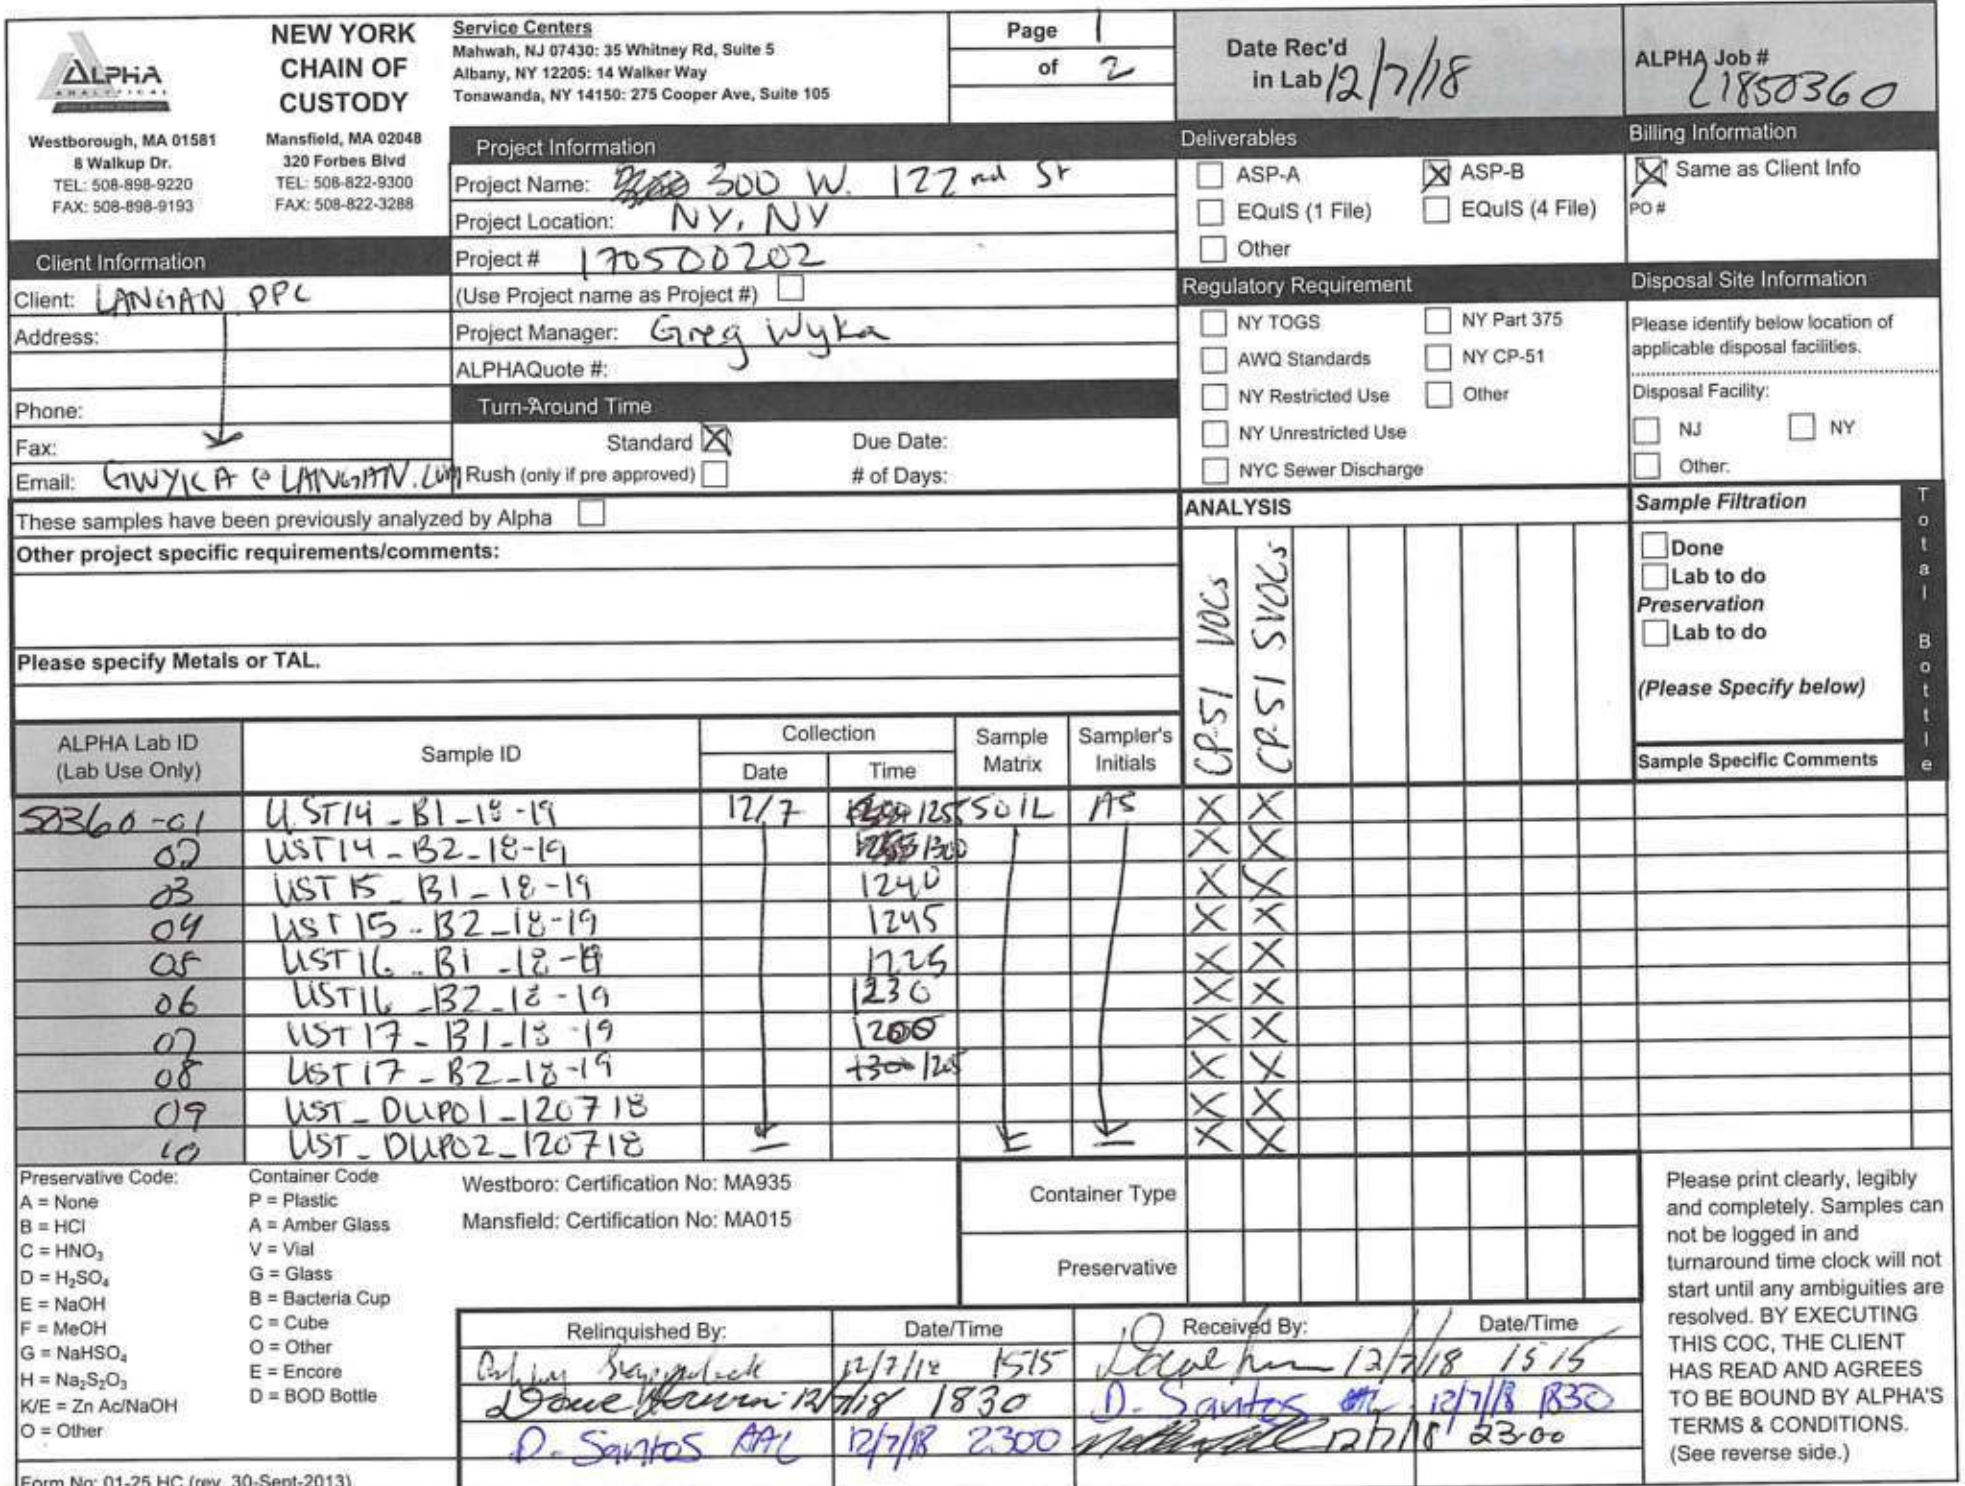 ALPHA
ANALYTICAL
Westborough, MA 01581
8 Walkup Dr.
TEL: 508-898-9220
FAX: 508-898-9193
NEW YORK
CHAIN OF
CUSTODY
Mansfield, MA 02048
320 Forbes Blvd
TEL: 508-822-9300
FAX: 508-822-3288
Service Centers
Mahwah, NJ 07430: 35 Whitney Rd, Suite 5
Albany, NY 12205: 14 Walker Way
Tonawanda, NY 14150: 275 Cooper Ave, Suite 105
Page 1
of 2
Date Rec'd
in Lab 12/7/18
ALPHA Job #
L1850360
Client Information
Client: LANGAN DPC
Address:
Phone:
Fax:
Email: GWYKA@LANGAN.COM
Project Information
Project Name: 300 W. 122nd St
Project Location: NY, NY
Project # 170500202
(Use Project name as Project #)
Project Manager: Greg Wyka
ALPHAQuote #:
Turn-Around Time
Standard Due Date:
Rush (only if pre approved) # of Days:
Deliverables
ASP-A ASP-B
EQuIS (1 File) EQuIS (4 File)
Other
Regulatory Requirement
NY TOGS NY Part 375
AWQ Standards NY CP-51
NY Restricted Use Other
NY Unrestricted Use
NYC Sewer Discharge
Billing Information
Same as Client Info
PO #
Disposal Site Information
Please identify below location of
applicable disposal facilities.
Disposal Facility:
NJ NY
Other:
These samples have been previously analyzed by Alpha
Other project specific requirements/comments:
Please specify Metals or TAL.
ANALYSIS
CP-51 VOCs
CP-51 SVOCs
Sample Filtration
Done
Lab to do
Preservation
Lab to do
(Please Specify below)
Sample Specific Comments
Total Bottle
ALPHA Lab ID
(Lab Use Only)
Sample ID
Collection
Date Time
Sample
Matrix
Sampler's
Initials
50360-01 UST14_B1_18-19 12/7 1255 SOIL AS X X
02 UST14_B2_18-19 1300 X X
03 UST15_B1_18-19 1240 X X
04 UST15_B2_18-19 1245 X X
05 UST16_B1_18-19 1225 X X
06 UST16_B2_18-19 1230 X X
07 UST17_B1_18-19 1200 X X
08 UST17_B2_18-19 1300 1205 X X
09 UST_DUP01_120718 X X
10 UST_DUP02_120718 X X
Preservative Code:
A = None
B = HCl
C = HNO₃
D = H₂SO₄
E = NaOH
F = MeOH
G = NaHSO₄
H = Na₂S₂O₃
K/E = Zn Ac/NaOH
O = Other
Container Code
P = Plastic
A = Amber Glass
V = Vial
G = Glass
B = Bacteria Cup
C = Cube
O = Other
E = Encore
D = BOD Bottle
Westboro: Certification No: MA935
Mansfield: Certification No: MA015
Container Type
Preservative
Relinquished By: Date/Time Received By: Date/Time
12/7/18 1515 12/7/18 1515
12/7/18 1830 D. Santos 12/7/18 1830
D. Santos AAL 12/7/18 2300 12/7/18 23:00
Please print clearly, legibly
and completely. Samples can
not be logged in and
turnaround time clock will not
start until any ambiguities are
resolved. BY EXECUTING
THIS COC, THE CLIENT
HAS READ AND AGREES
TO BE BOUND BY ALPHA'S
TERMS & CONDITIONS.
(See reverse side.)
Form No: 01-25 HC (rev. 30-Sept-2013)